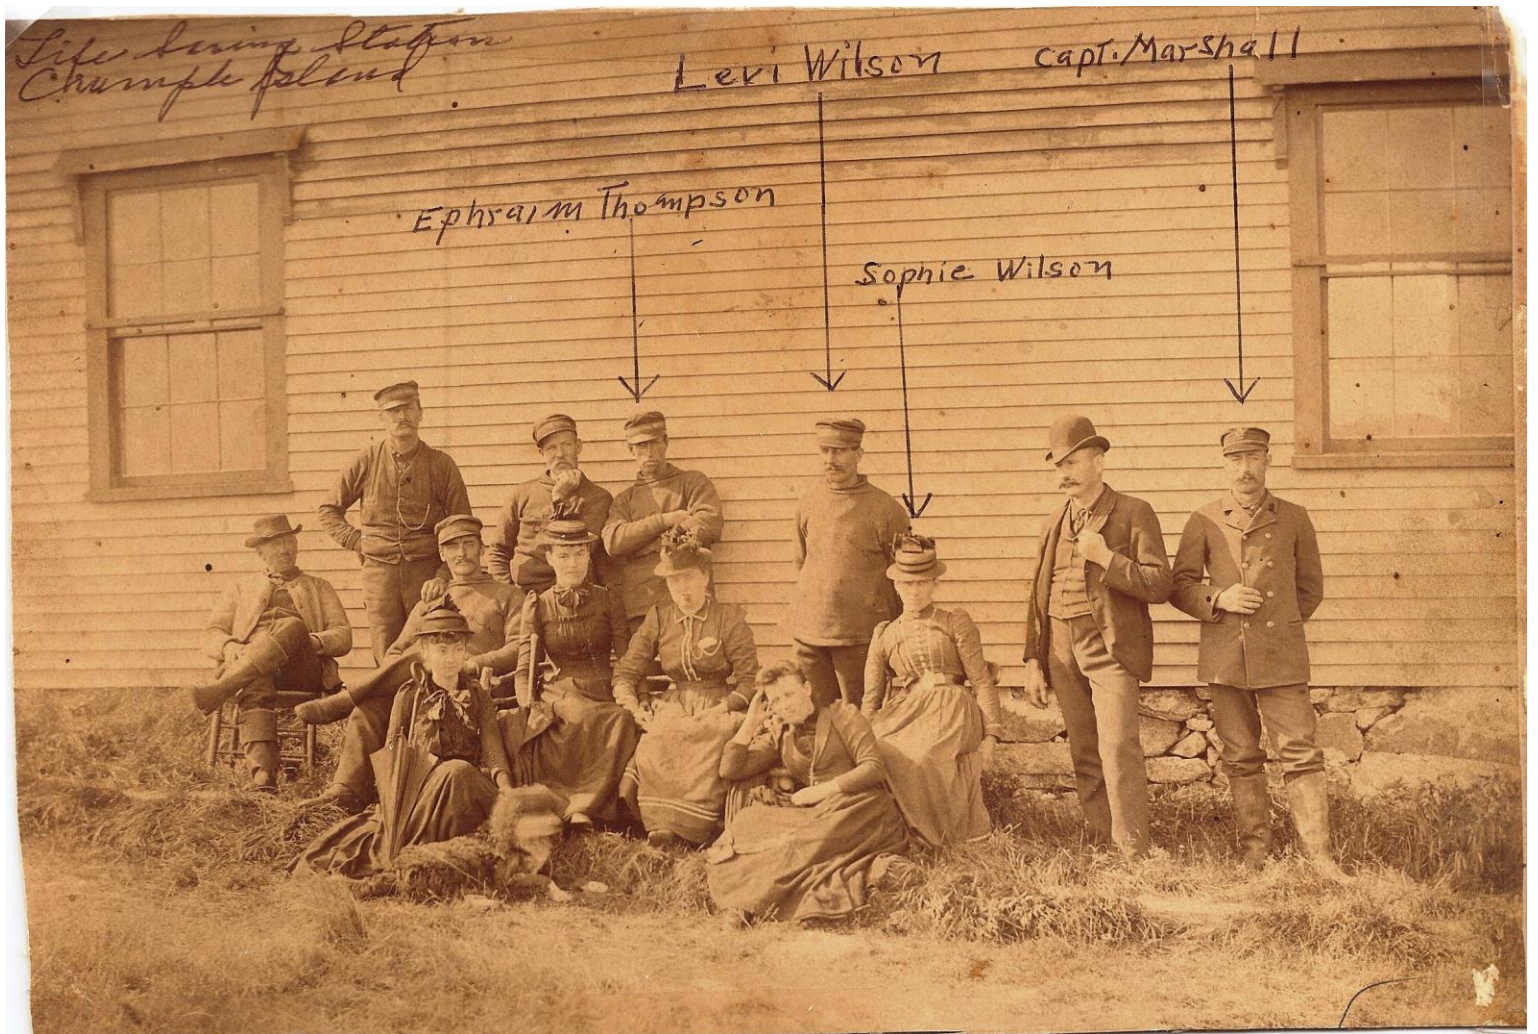 Life Saving Station
Crumple Island
Levi Wilson
Capt. Marshall
Ephraim Thompson
Sophie Wilson